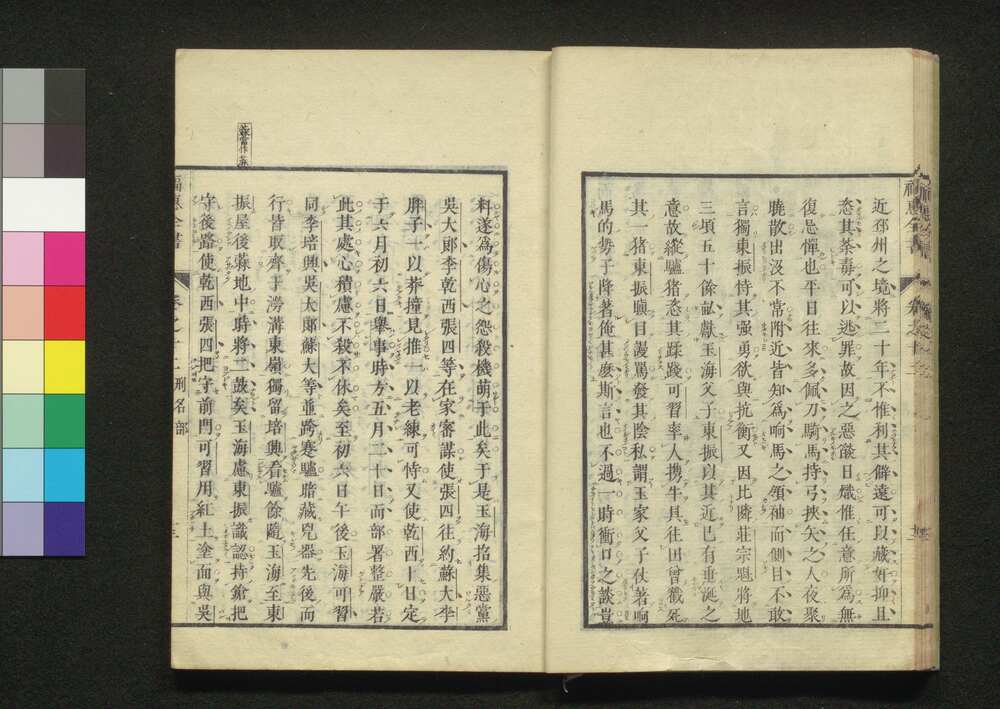 近邳州之境將二十年不惟利其僻遠可以藏奸抑且
恣其荼毒可以逃罪故因之惡燄日熾惟任意所爲無
復忌憚也平日往來多佩刀騎馬持弓挾矢之人夜聚
曉散出沒不常附近皆知爲响馬之領袖而側目不敢
言獨東振恃其强勇欲與抗衡又因比隣莊宗魁將地
三頃五十餘畝獻玉海父子東振以其近已有垂涎之
意故縱驢猪恣其蹂踐可習率人携牛具往田曾戳死
其一猪東振瞋目謾罵發其陰私謂玉家父子仗著响
馬的勢子降著俺甚麽斯言也不過一時衝口之談豈
料遂爲傷心之怨殺機萌于此矣于是玉海招集惡黨
吳大郎李乾西張四等在家密謀使張四往約蘇大李
胖子一以莽撞見推一以老練可恃又使乾西卜日定
于六月初六日舉事時方五月二十日而部署整嚴若
此其處心積慮不殺不休矣至初六日午後玉海可習
同李培興吳太郎蘇大等並跨蹇驢暗藏兇器先後而
行皆取齊于澇溝東嶺獨留培興看驢餘隨玉海至東
振屋後蔴地中時將二鼓矣玉海慮東振識認持鎗把
守後路使乾西張四把守前門可習用紅土塗面與吳
福惠全書
卷之十二 刑名部